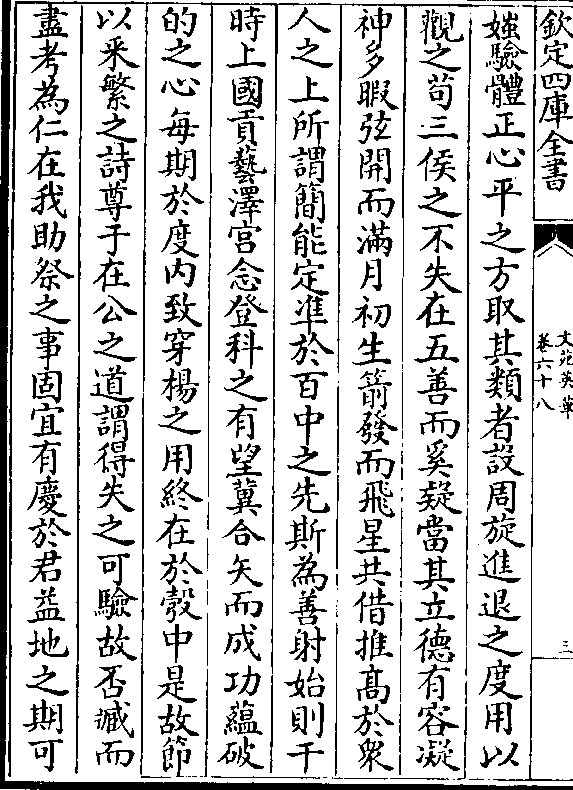 欽定四庫全書
文苑英華
卷六十八
三
媸驗體正心平之方取其類者設周旋進退之度用以
觀之苟三侯之不失在五善而奚疑當其立德有容凝
神多暇弦開而滿月初生箭發而飛星共借推髙於衆
人之上所謂簡能定凖於百中之先斯為善射始則干
時上國貢藝澤宫念登科之有望冀合矢而成功蘊破
的之心每期於度内致穿楊之用終在於彀中是故節
以采繁之詩尊于在公之道謂得失之可驗故否臧而
盡考為仁在我助祭之事固宜有慶於君益地之期可